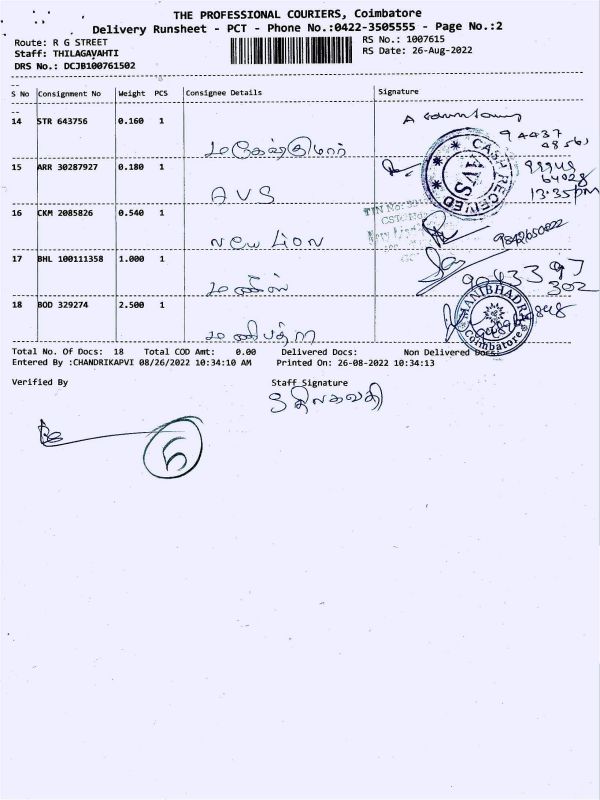 THE PROFESSIONAL COURIERS, Coimbatore
Delivery Runsheet - PCT - Phone No.:0422-3505555 - Page No.:2
Route: R G STREET
RS No.: 1007615
Staff: THILAGAVAHTI
RS Date: 26-Aug-2022
DRS No.: DCJB100761502
S No Consignment No Weight PCS Consignee Details Signature
14 STR 643756 0.160 1
மகேஸ்குமார்
94437
48561
15 ARR 30287927 0.180 1
AVS
CASH RECEIVED
AVS
13:35pm
16 CKM 2085826 0.540 1
New Lion
TIN No:
9842650022
17 BHL 100111358 1.000 1
மணீஸ்
9043397
302
18 BOD 329274 2.500 1
மணிபத்ரா
MANIBHADRA
Coimbatore
Total No. Of Docs: 18 Total COD Amt: 0.00 Delivered Docs: Non Delivered Docs:
Entered By :CHANDRIKAPVI 08/26/2022 10:34:10 AM Printed On: 26-08-2022 10:34:13
Verified By Staff Signature
திலகவதி
5